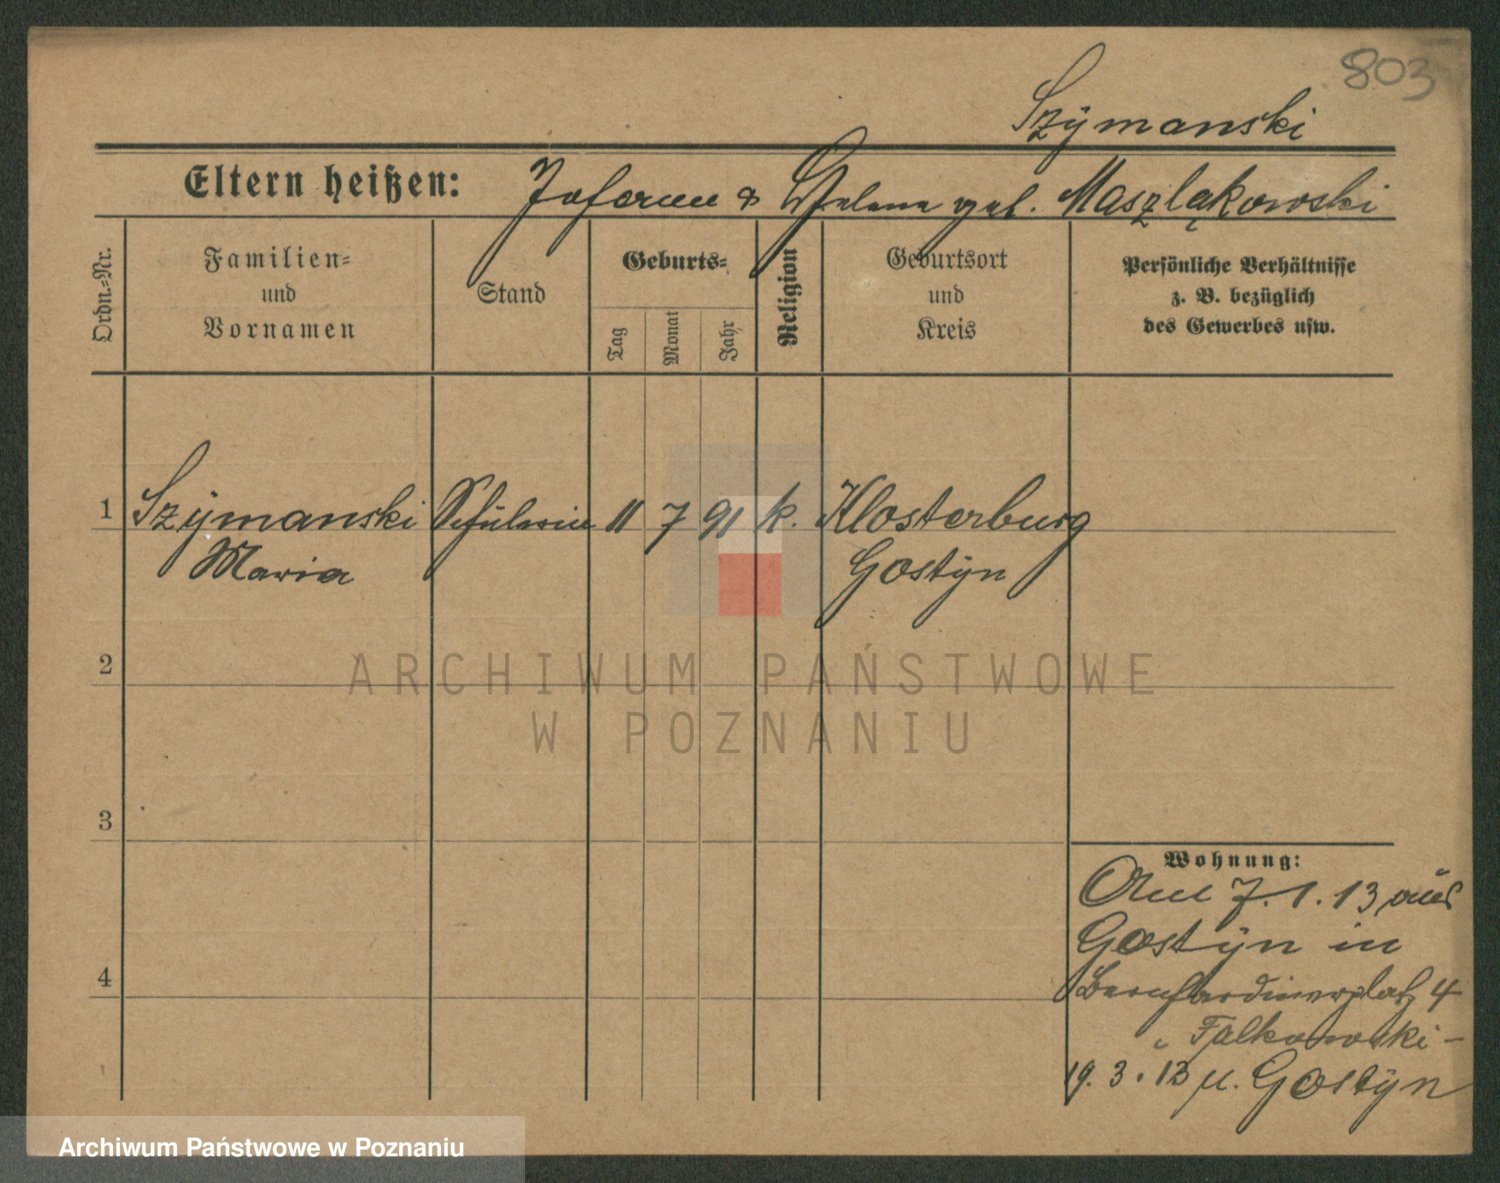 803
Szymanski
Eltern heißen: Johann & Helene geb. Maszląkowski
Ordn.-Nr.
Familien-
und
Vornamen
Stand
Geburts-
Tag
Monat
Jahr
Religion
Geburtsort
und
Kreis
Persönliche Verhältnisse
z. B. bezüglich
des Gewerbes usw.
1 Szymanski Schülerin 11 7 91 k. Klosterburg
Maria Gostyn
2
3
4
Wohnung:
7.1.13 aus
Gostyn in
Bernhardinerplatz 4
Falkowski -
19.3.13 n. Gostyn
ARCHIWUM PAŃSTWOWE
W POZNANIU
Archiwum Państwowe w Poznaniu